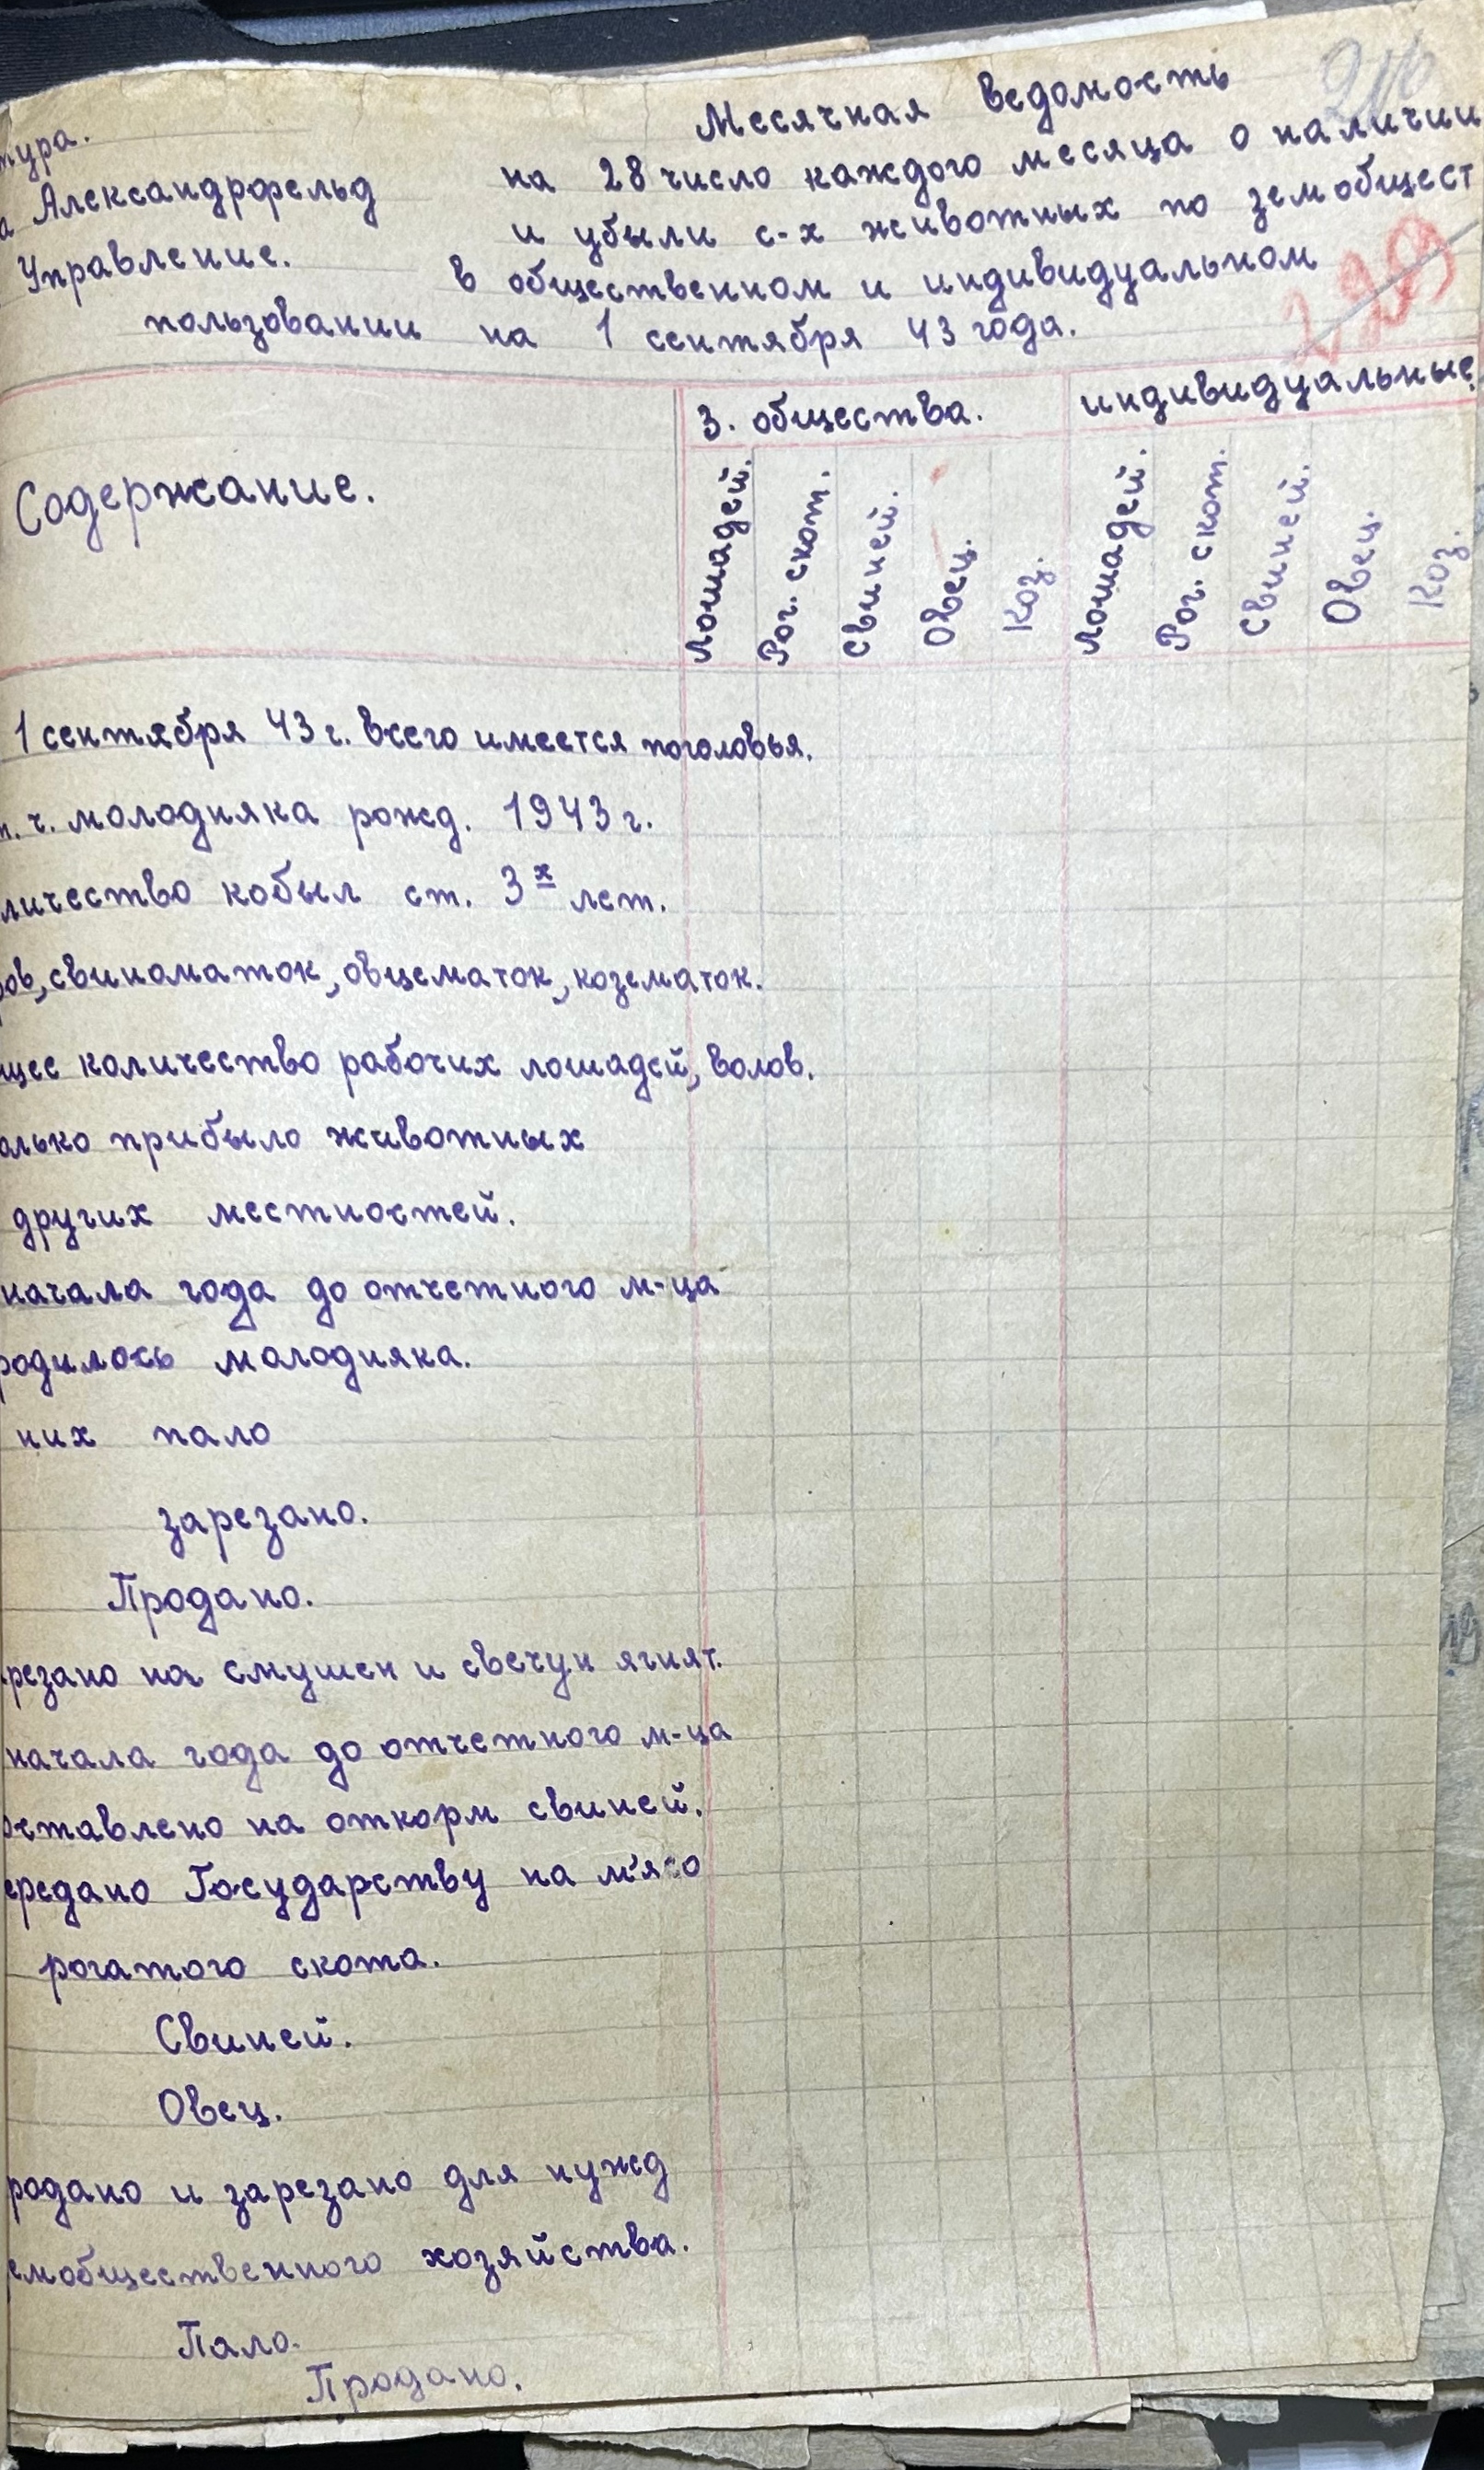 Месячная ведомость
тура.
Александрфельд
на 28 число каждого месяца о наличии
Управление.
и убыли с-х животных по земобщест
в общественном и индивидуальном
пользовании на 1 сентября 43 года.
Содержание.
3. общества.
индивидуальные
Лошадей.
Рог. скот.
Свиней.
Овец.
Коз.
Лошадей.
Рог. скот.
Свиней.
Овец.
Коз.
1 сентября 43 г. всего имеется поголовья.
т. ч. молодняка рожд. 1943 г.
личество кобыл ст. 3х лет.
ров, свиноматок, овцематок, козематок.
щее количество рабочих лошадей, волов.
олько прибыло животных
других местностей.
начала года до отчетного м-ца
родилось молодняка.
них пало
зарезано.
Продано.
резано на смушек и свечун ягнят.
начала года до отчетного м-ца
оставлено на откорм свиней.
ередано Государству на м'ясо
рогатого скота.
Свиней.
Овец.
родано и зарезано для нужд
емобщественного хозяйства.
Пало.
Продано.
19